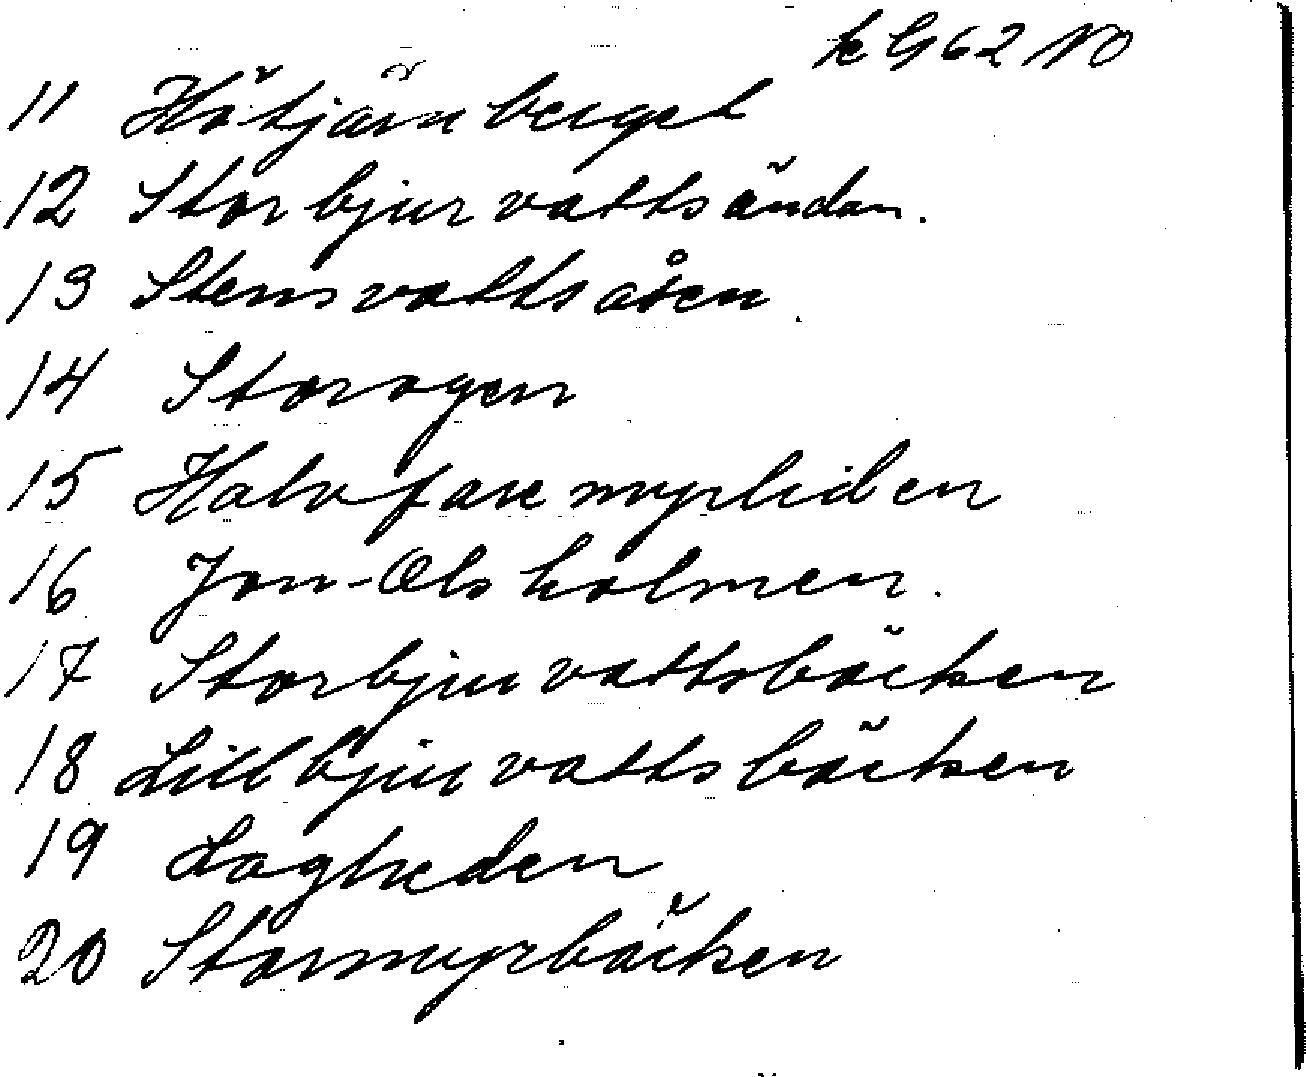 k G 62 NO
11 Hötjärnberget
12 Storbjurvattsändan.
13 Stensvattsåsen
14 Storogen
15 Halvfaremyrliden
16 Jon-Olsholmen.
17 Storbjurvattsbäcken
18 Lillbjurvattsbäcken
19 Lagheden
20 Stormyrbäcken